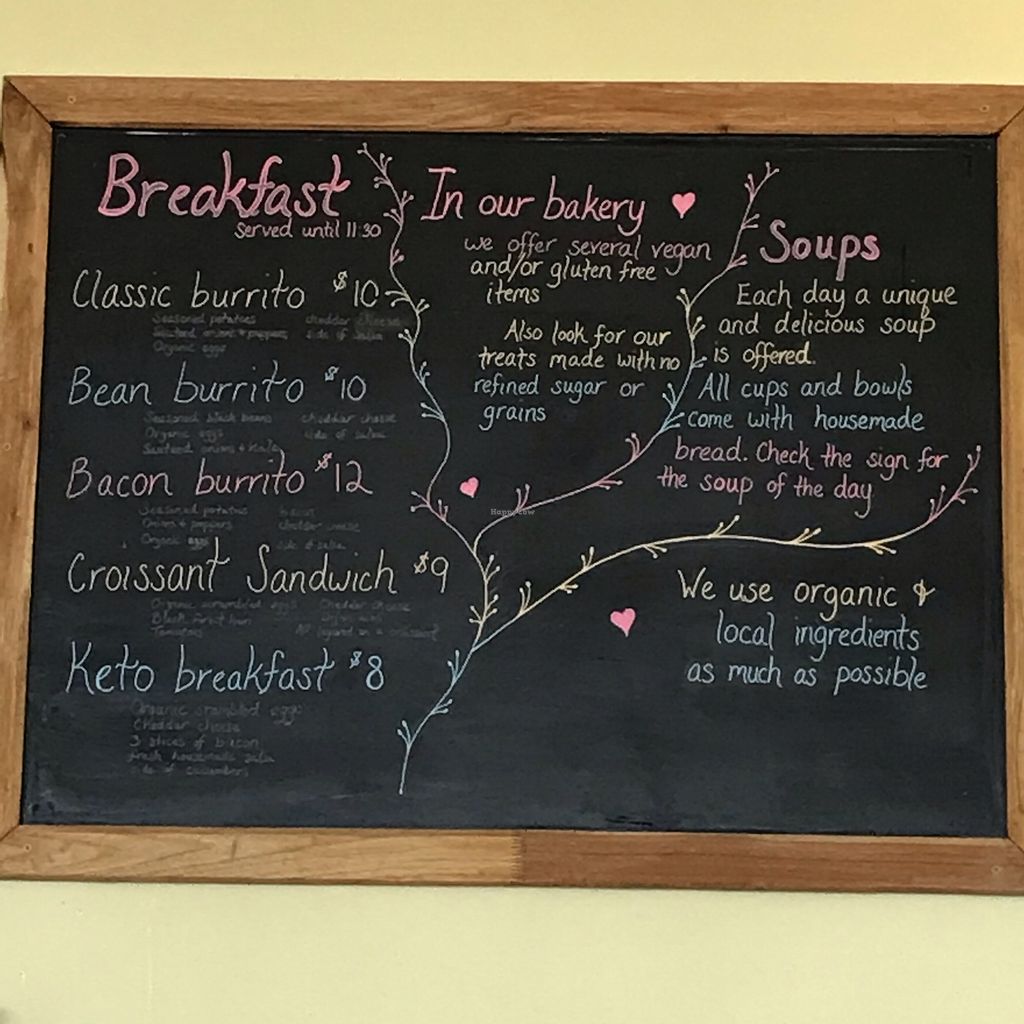 Breakfast
Served until 11:30
Classic burrito $10
Seasoned potatoes cheddar cheese
Sauteed onions + peppers side of salsa
Organic eggs
Bean burrito $10
Seasoned black beans cheddar cheese
Organic eggs side of salsa
Sauteed onions + kale
Bacon burrito $12
Seasoned potatoes bacon
Onions + peppers cheddar cheese
Organic eggs side of salsa
Croissant Sandwich $9
Organic scrambled eggs cheddar cheese
Black forest ham
Tomatoes on a croissant
Keto breakfast $8
Organic scrambled eggs
Cheddar cheese
3 slices of bacon
fresh housemade salsa
side of cucumbers
In our bakery
we offer several vegan
and/or gluten free
items
Also look for our
treats made with no
refined sugar or
grains
Soups
Each day a unique
and delicious soup
is offered.
All cups and bowls
come with housemade
bread. Check the sign for
the soup of the day
We use organic &
local ingredients
as much as possible
HappyCow